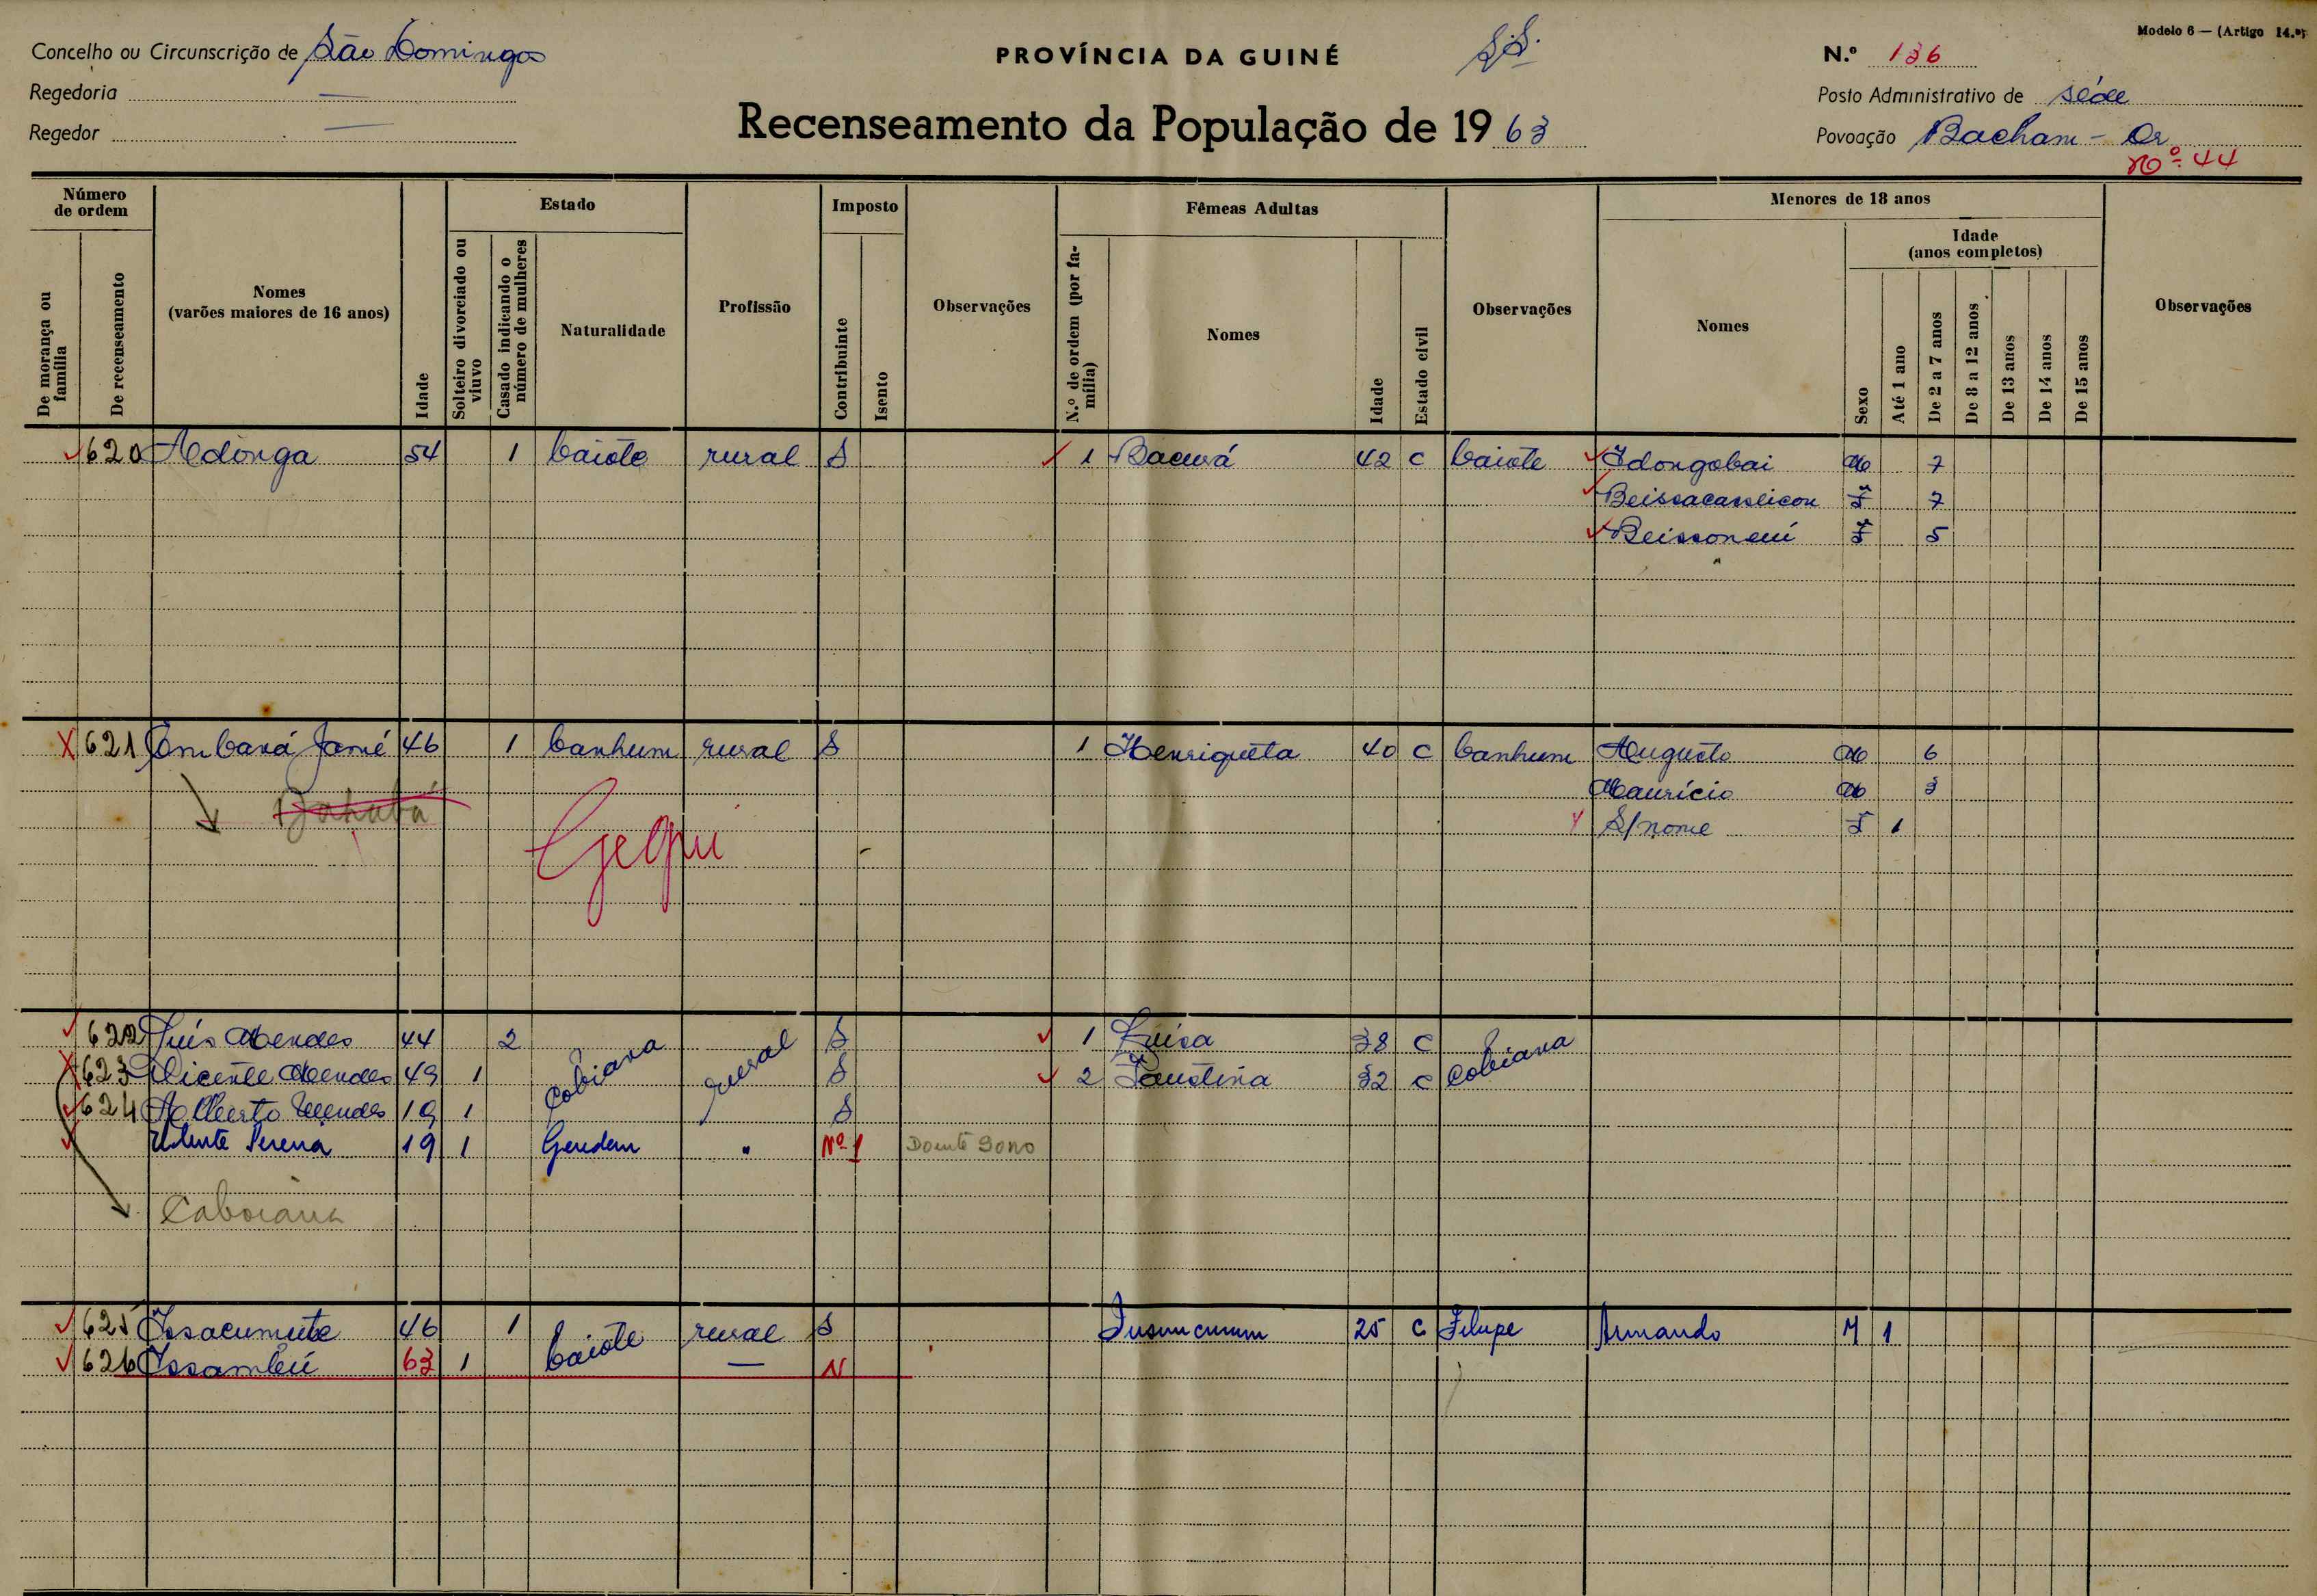 Modelo 6 — (Artigo 14.º)
Concelho ou Circunscrição de São Domingos
PROVÍNCIA DA GUINÉ
N.º 136
Regedoria —
Posto Administrativo de Séde
Regedor —
Recenseamento da População de 1963
Povoação Bacham - Or
Nº 44
Número de ordem
De morança ou família
De recenseamento
Nomes
(varões maiores de 16 anos)
Idade
Estado
Solteiro divorciado ou viuvo
Casado indicando o número de mulheres
Naturalidade
Profissão
Imposto
Contribuinte
Isento
Observações
Fêmeas Adultas
N.º de ordem (por família)
Nomes
Idade
Estado civil
Observações
Menores de 18 anos
Nomes
Sexo
Idade
(anos completos)
Até 1 ano
De 2 a 7 anos
De 8 a 12 anos
De 13 anos
De 14 anos
De 15 anos
Observações
620 Adonga 54 1 baiote rural S 1 42 C baiote Idongobai M 7
F 7
F 5
621 46 1 banhum rural S 1 Henriqueta 40 C banhum Augusto M 6
Maurício M 3
S/nome F 1
622 Luís Mendes 44 2 Cobiana rural S 1 Luisa 38 C Cobiana
623 Vicente Mendes 49 1 S 2 Faustina 32 C
624 Alberto Mendes 19 1 S
19 1 " Nº 1 Doente Sono
Caboiana
625 Issacumute 46 1 baiote rural S 25 C Felupe Armando M 1
626 63 1 — N